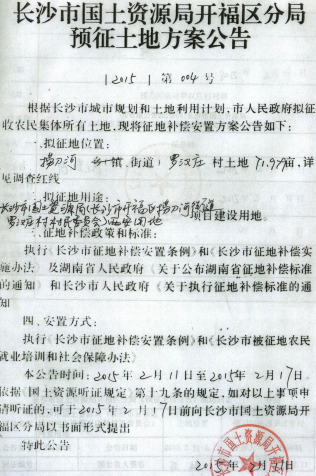 长沙市国土资源局开福区分局
预征土地方案公告
[2015] 第004号
根据长沙市城市规划和土地利用计划,市人民政府拟征
收农民集体所有土地,现将征地补偿安置方案公告如下:
一、拟征地位置:
捞刀河 乡镇、街道:罗汉庄 村土地 71.979亩,详
见调查红线
二、拟征地用途:
长沙市国土资源局(长沙市开福区捞刀河街道
罗汉庄村村民委员会) 项目建设用地。
三、征地补偿政策和标准:
执行《长沙市征地补偿安置条例》和《长沙市征地补偿实
施办法》及湖南省人民政府《关于公布湖南省征地补偿标准
的通知》和长沙市人民政府《关于执行征地补偿标准的通
知
四、安置方式:
执行《长沙市征地补偿安置条例》和《长沙市被征地农民
就业培训和社会保障办法》
本公告时间:2015年 2月11日至2015年 2月17日。
依据《国土资源听证规定》第十九条的规定,如对以上事项申
请听证的,可于2015年 2月17日前向长沙市国土资源局开
福区分局以书面形式提出
特此公告
2015年 2月11日